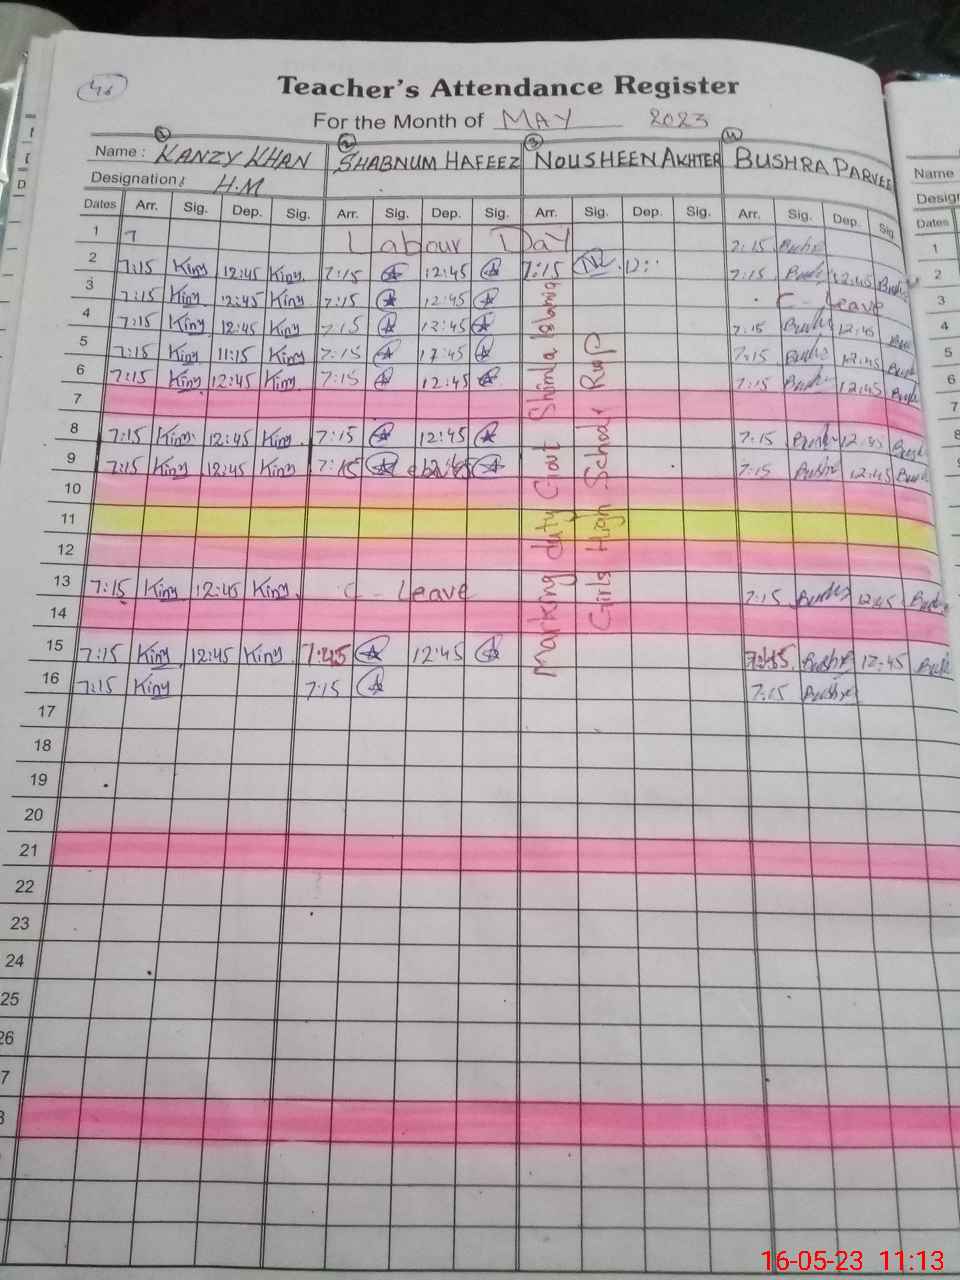 46
Teacher's Attendance Register
For the Month of MAY 2023
1 2 3 4
Name : KANZY KHAN SHABNUM HAFEEZ NOUSHEEN AKHTER BUSHRA PARVEE
Designation: H.M
Dates Arr. Sig. Dep. Sig. Arr. Sig. Dep. Sig. Arr. Sig. Dep. Sig. Arr. Sig. Dep. Sig
1 7 Labour Day 7:15
2 7:15 Kiny 12:45 Kiny 7:15 12:45 7:15 12: 7:15 12:45
3 7:15 Kiny 12:45 Kiny 7:15 12:45 C - Leave
4 7:15 Kiny 12:45 Kiny 7:15 12:45 7:15 12:45
5 7:15 Kiny 11:15 Kiny 7:15 12:45 7:15 12:45
6 7:15 Kiny 12:45 Kiny 7:15 12:45 7:15 12:45
7
8 7:15 Kiny 12:45 Kiny 7:15 12:45 7:15 12:45
9 7:15 Kiny 12:45 Kiny 7:15 12:45 7:15 12:45
10
11
12
13 7:15 Kiny 12:45 Kiny C - Leave 7:15 12:45
14
15 7:15 Kiny 12:45 Kiny 7:15 12:45 7:15 12:45
16 7:15 Kiny 7:15 7:15
Marking duty Shimla Islamia
Girls High School RWP
17
18
19
20
21
22
23
24
25
26
7
8
Name
Desig
Dates
1
2
3
4
5
6
7
8
16-05-23 11:13